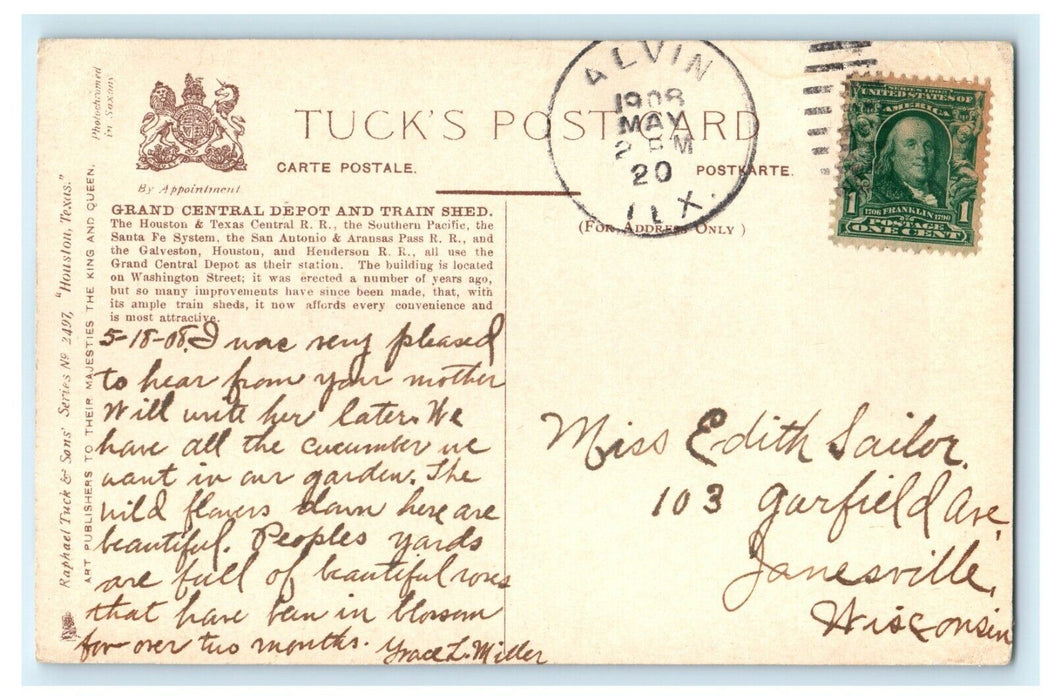 Photochromed
in Saxony
By Appointment
TUCK'S POSTCARD
CARTE POSTALE.
POSTKARTE.
(FOR ADDRESS ONLY )
ALVIN
1908
MAY
2 PM
20
TEX.
SERIES 1902
UNITED STATES OF
AMERICA
1
1706 FRANKLIN 1790
POSTAGE
ONE CENT
1
Raphael Tuck & Sons' Series No 2497, "Houston, Texas."
ART PUBLISHERS TO THEIR MAJESTIES THE KING AND QUEEN.
GRAND CENTRAL DEPOT AND TRAIN SHED.
The Houston & Texas Central R. R., the Southern Pacific, the
Santa Fe System, the San Antonio & Aransas Pass R. R., and
the Galveston, Houston, and Henderson R. R., all use the
Grand Central Depot as their station. The building is located
on Washington Street; it was erected a number of years ago,
but so many improvements have since been made, that, with
its ample train sheds, it now affords every convenience and
is most attractive.
5-18-08. I was very pleased
to hear from your mother
Will write her later. We
have all the cucumber we
want in our garden. The
wild flowers down here are
beautiful. Peoples yards
are full of beautiful roses
that have been in blossom
for over two months. Grace L. Miller
Miss Edith Sailor.
103 Garfield Ave,
Janesville,
Wisconsin